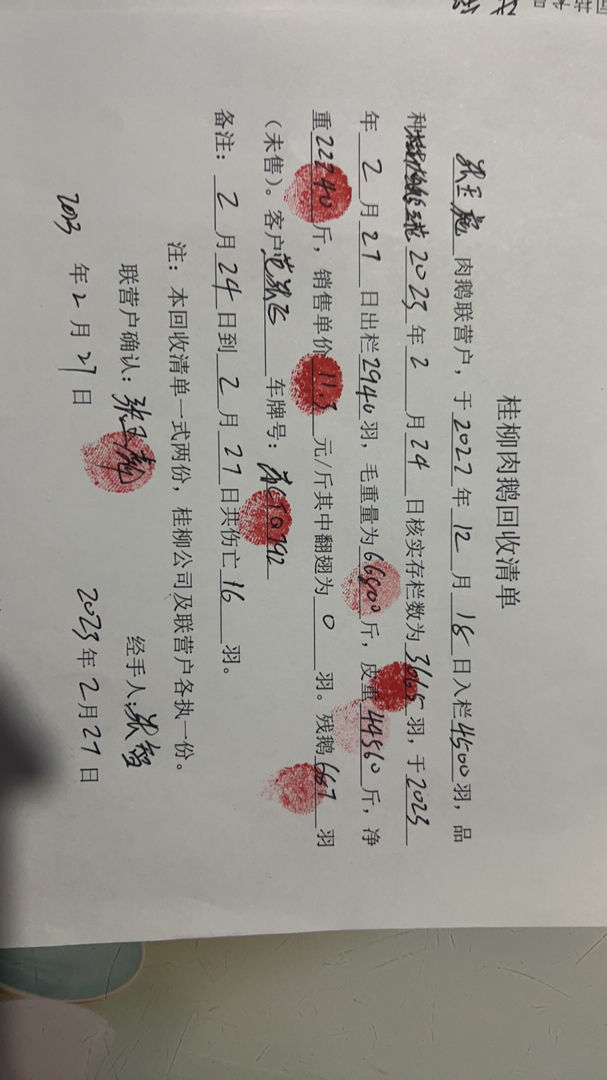 桂柳肉鹅回收清单
肉鹅联营户，于2022年12月18日入栏4500羽，品
种 2023年2月24日核实存栏数为3665羽，于2023
年2月27日出栏2940羽，毛重量为66800斤，皮重44560斤，净
重22240斤，销售单价11.3元/斤其中翻翅为0羽。残鹅667羽
（未售）。客户 车牌号：
备注：2月24日到2月27日共伤亡16羽。
注：本回收清单一式两份，桂柳公司及联营户各执一份。
联营户确认： 经手人：
2023年2月27日 2023年2月27日